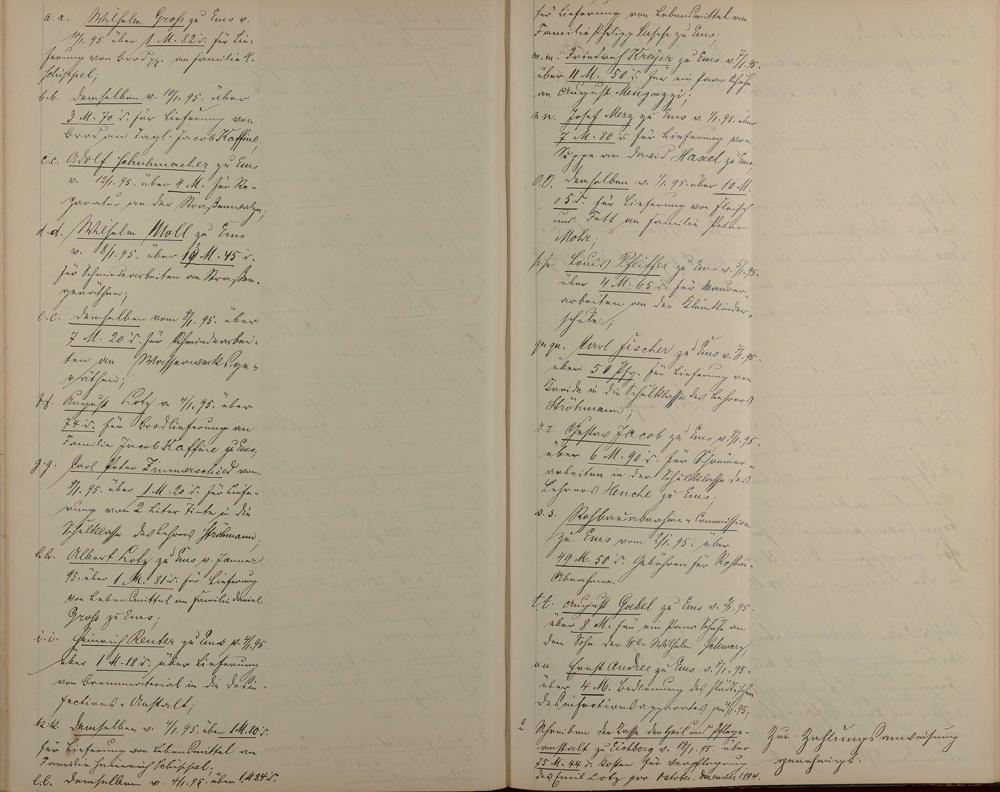 a.a. Wilhelm Groß zu Ems v.
10/1.95 über 1 M. 82 d. für Lie-
ferung von Brod pp. an Familie K.
b.b. demselben v. 10/1.95. über
3 M. 70 d. für Lieferung von
Brod an Tagl. Jacob Kaffine,
c.c. Adolf Schuhmacher zu Ems
v. 12/1.95. über 4 M. für Re-
paratur an der Straßenwalze;
d.d. Wilhelm Moll zu Ems
v. 8/1.95. über M. 45 d.
für Schmiedearbeiten an Straßen-
geräthen;
e.e. demselben vom 8/1.95. über
7 M. 20 d. für Schmiedearbei-
ten an Wasserwerksge-
räthen;
f.f. August Lotz v. 1.95. über
74 d. für Brodlieferung an
Familie Jacob Kaffine zu Ems;
g.g. Carl Peter Zimmerschied vom
1.95. über 1 M. 20 d. für Liefe-
rung von 2 Liter Tinte in die
Schulklasse des Lehrers Ströhmann;
h.h. Albert Lotz zu Ems v. Januar
95. über 1 M. 81 d. für Lieferung
von Lebensmittel an Familie Daniel
Groß zu Ems;
i.i. Heinrich Reuter zu Ems v. 4/1.95
über 1 M. 18 d. über Lieferung
von Brennmaterial in die Desin-
fections-Anstalt;
k.k. demselben v. 4/1.95. über 1 M. 80 d.
für Lieferung von Lebensmittel an
Familie Heinrich
l.l. demselben v. 4/1.95. über 1 M. 84 d.
für Lieferung von Lebensmittel an
Familie Philipp zu Ems;
m.m. Friedrich Kreyer zu Ems v. 1.95.
über 11 M. 50 d. für ein paar Schuhe
an August Mengazzi;
n.n. Josef Merz zu Ems v. 1.95. über
7 M. 80 d. für Lieferung von
Suppe an David Hasel zu Ems;
o.o. demselben v. 1.95. über 10 M.
05 d. für Lieferung von Fleisch
und Fett an Familie Peter
Mohr;
p.p. Louis Pfeiffer zu Ems v. 5/1.95.
über 4 M. 65 d. für Maurer-
arbeiten an der Kleinkinder-
schule;
q.q. Carl Fischer zu Ems v. 1.95.
über 50 Pfg. für Lieferung von
Kreide in die Schulklasse des Lehrers
Ströhmann;
r.r. Gustav Jacob zu Ems v. 1.95.
über 6 M. 90 d. für Schreiner-
arbeiten in der Schulklasse des
Lehrers Henche zu Ems;
s.s. Rohbauabnahme-Commission
zu Ems vom 1.95. über
49 M. 50 d. Gebühren für Rohbau-
Abnahmen.
t.t. August Goebel zu Ems v. 1.95.
über 8 M. für ein Paar Schuhe an
den Sohn der Wwe. Wilhelm Schwarz,
u.u. Ernst Andree zu Ems v. 1.95.
über 4 M. Bedienung des städtischen
Desinfectionsapparates am 1.95;
2 Schreiben der Kasse der Heil und Pflege-
anstalt zu Eichberg v. 1.95. über
25 M. 44 d. Kosten für Verpflegung
des Emil Lotz pro October-Dezember 1894.
Zur Zahlungsanweisung
genehmigt.